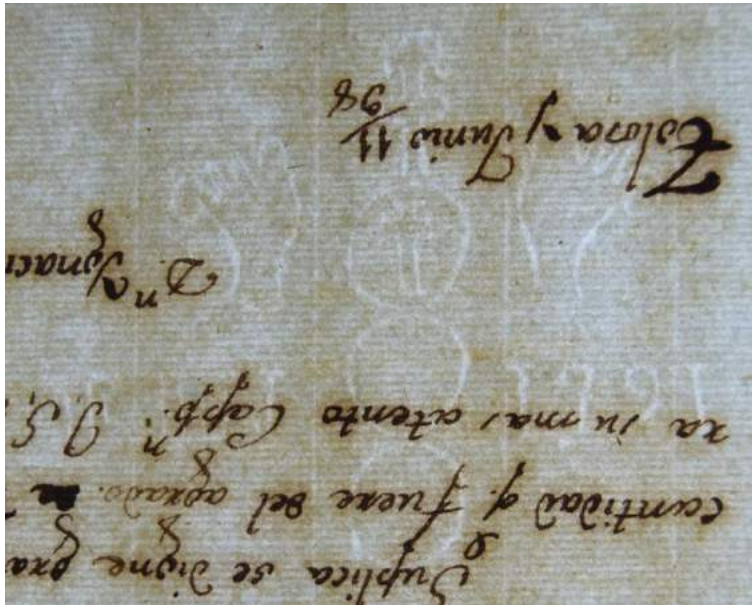 Suplica se digne
cantidad q. fuere del agrado.
ra su mas atento Capp.ⁿ
D.ⁿ Ygnaci
Tolosa y Junio 11
98